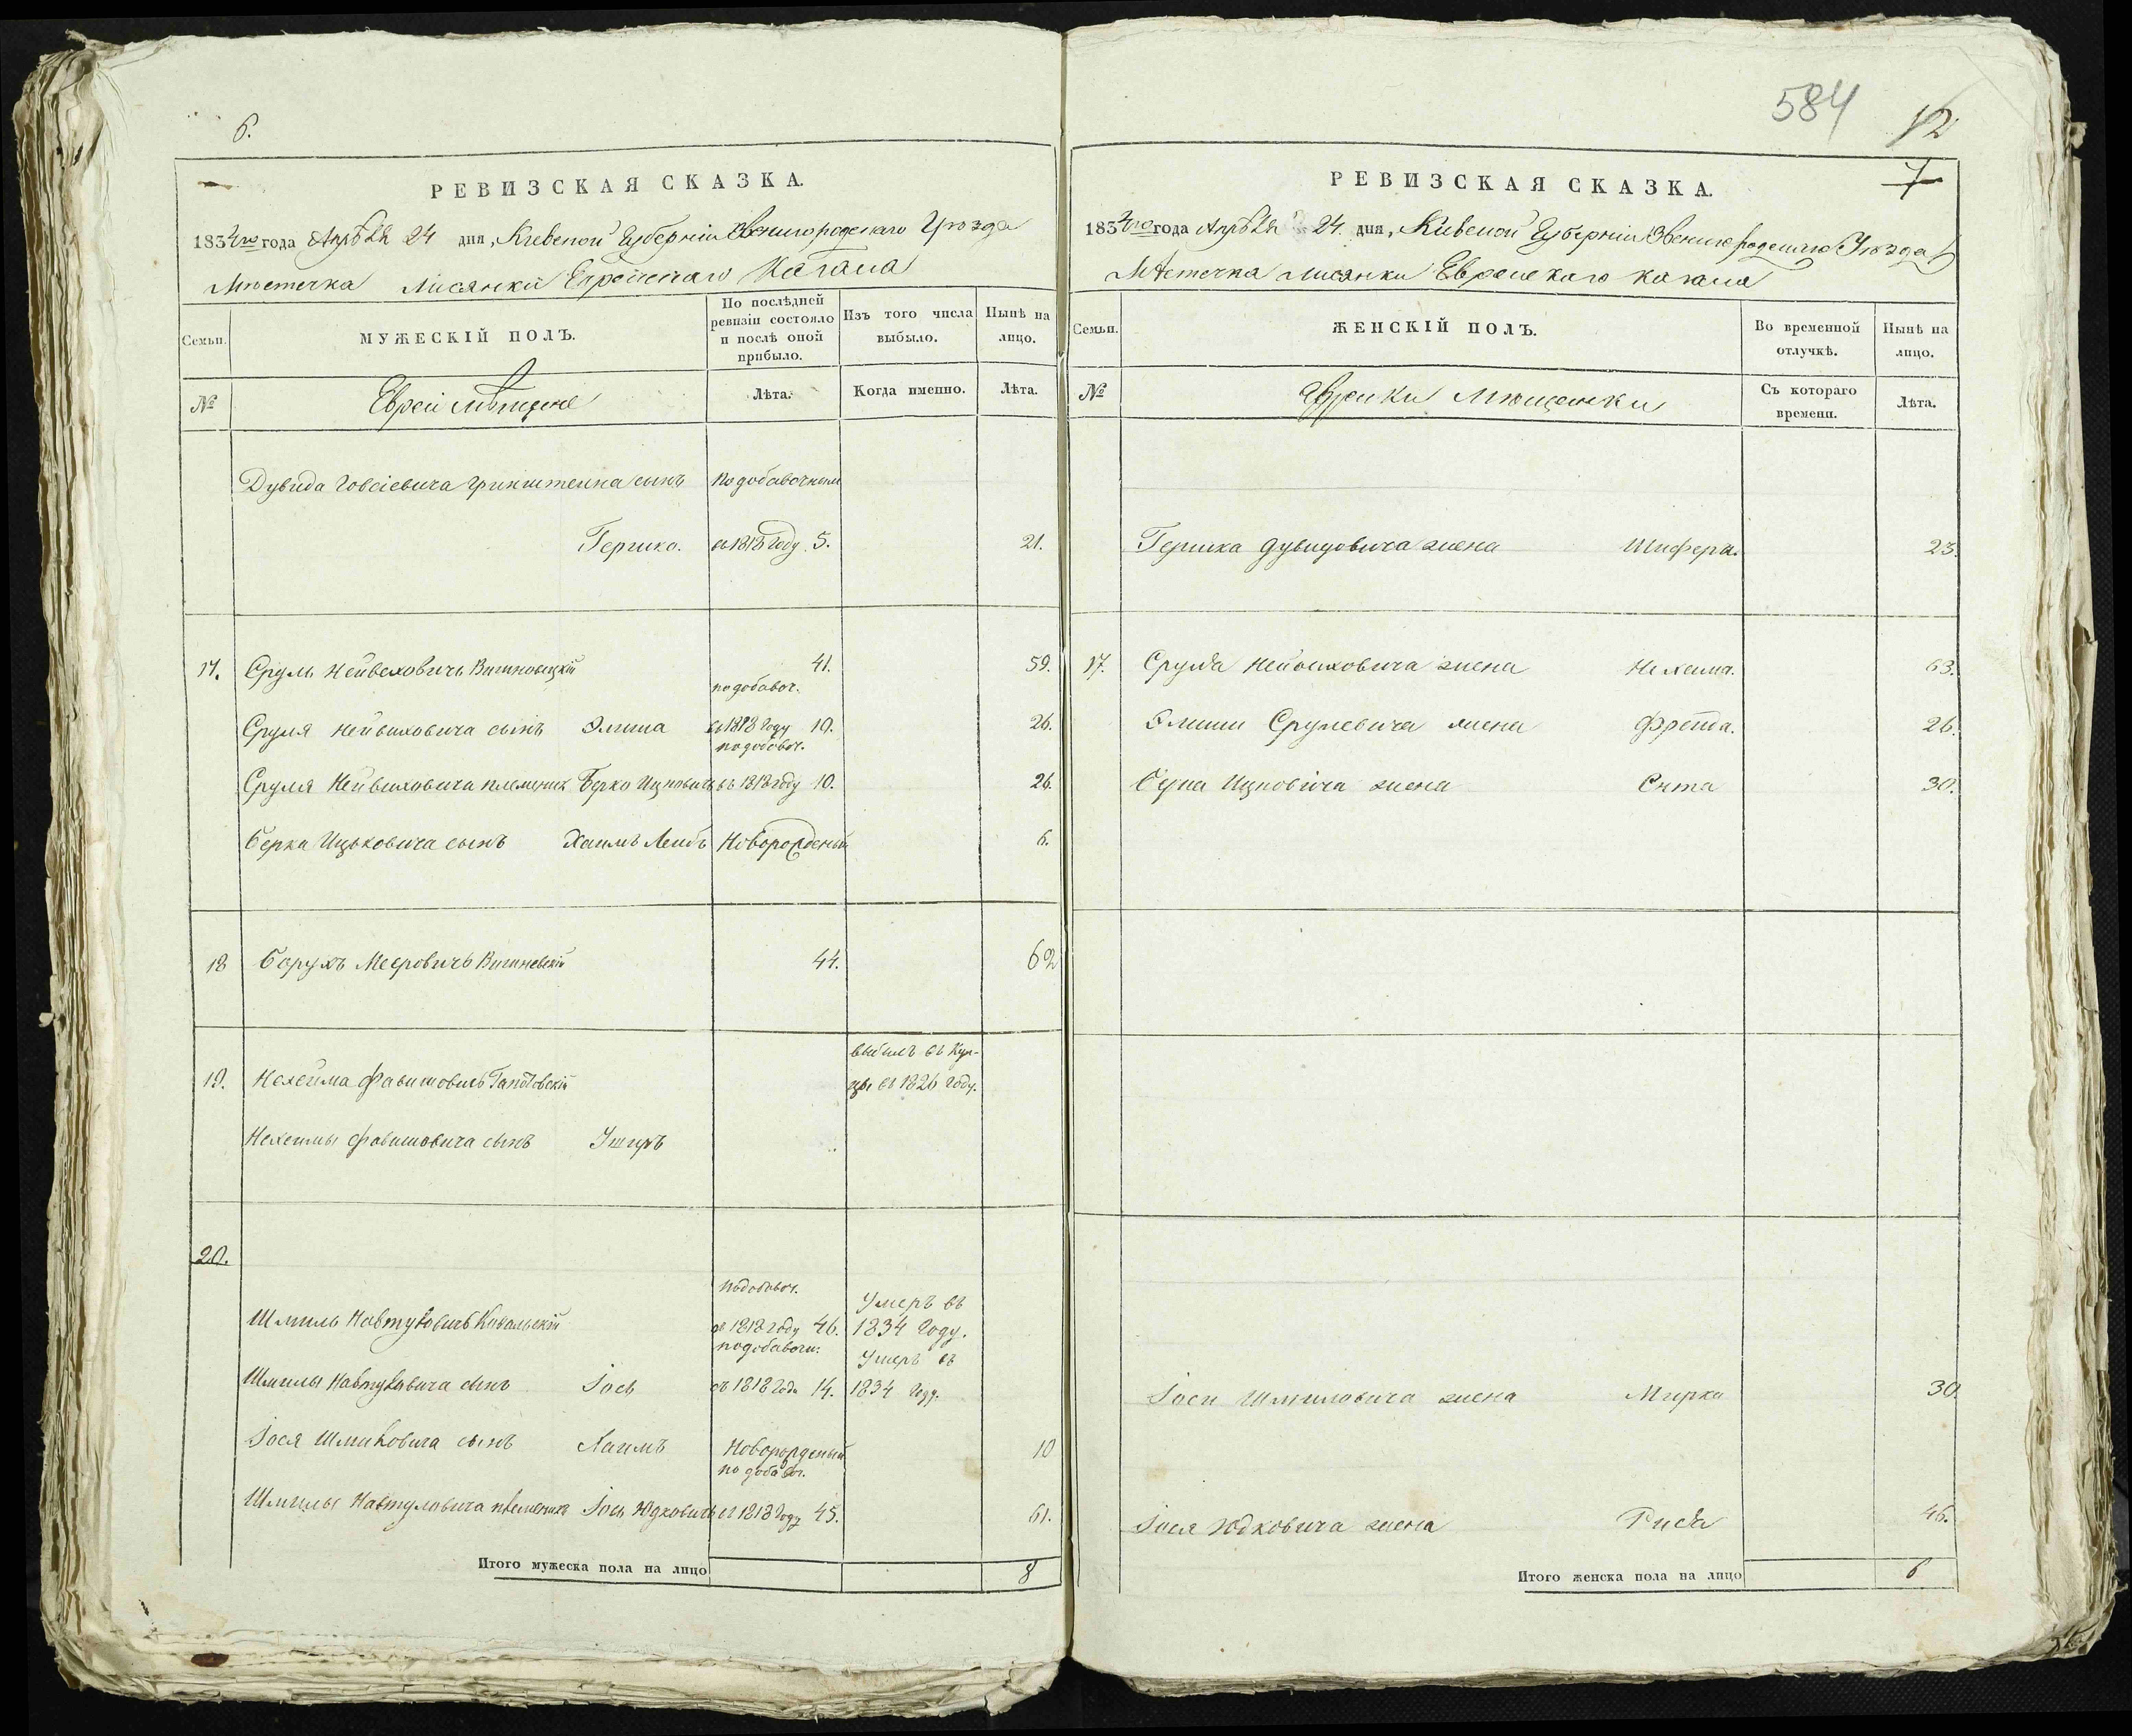 6.
РЕВИЗСКАЯ СКАЗКА.
1834го года Апрѣля 24 дня, Кіевской Губерніи Звенигородскаго Уѣзда
Мѣстечка Лисянки Еврейскаго Кагала
Семьи.
МУЖЕСКІЙ ПОЛЪ.
По послѣдней ревизіи состояло и послѣ оной прибыло.
Изъ того числа выбыло.
Нынѣ на лицо.
№
Евреи мѣщане
Лѣта.
Когда именно.
Лѣта.
Дувида Іовсіевича Гринштеина сынъ по добавочным
Гершко. въ 1818 году 5. 21.
17. Сруль Нейвеховичъ 41. 59.
по добавоч.
Сруля Нейвиховича сынъ Элиша въ 1818 году 10. 26.
по добавоч.
Сруля Нейвиховича племеник Берко Ицковичъ въ 1818 году 10. 26.
Берка Ицьковича сынъ Хаимъ Леибъ Новорожденый 6.
18 Борухъ Мееровичъ 44. 62
выбылъ въ Куп-
19. Нехейма Фавишовичъ цы въ 1826 году.
Нехеймы Фавишовича сынъ Ушеръ
20.
по добавоч. Умеръ въ
Шмиль Навтуловичъ Ковальскій въ 1818 году 46. 1834 году.
по добавоч. Умеръ въ
Шмилы Навтуловича сынъ Іось въ 1818 года 14. 1834 году.
Іося Шмиловича сынъ Хаимъ Новорожденый 10
по добавоч.
Шмилы Навтуловича племеникъ Іось Юдковичъ въ 1818 году 45. 61.
Итого мужеска пола на лицо 8
584
12
7
РЕВИЗСКАЯ СКАЗКА.
1834го года Апрѣля 24. дня, Кіевской Губерніи Звенигородскаго Уѣзда
Мѣстечка Лисянки Еврейскаго Кагала
Семьи.
ЖЕНСКІЙ ПОЛЪ.
Во временной отлучкѣ.
Нынѣ на лицо.
№
Еврейки Мѣщанки
Съ котораго времени.
Лѣта.
Гершка Дувидовича жена Шифра. 23.
17. Сруля Нейвиховича жена Нехама. 63.
Элиши Срулевича жена Фрейда. 26.
Берка Ицковича жена Сита 30.
Іося Шмиловича жена Мирка 30.
Іося Юдковича жена 46.
Итого женска пола на лицо 6